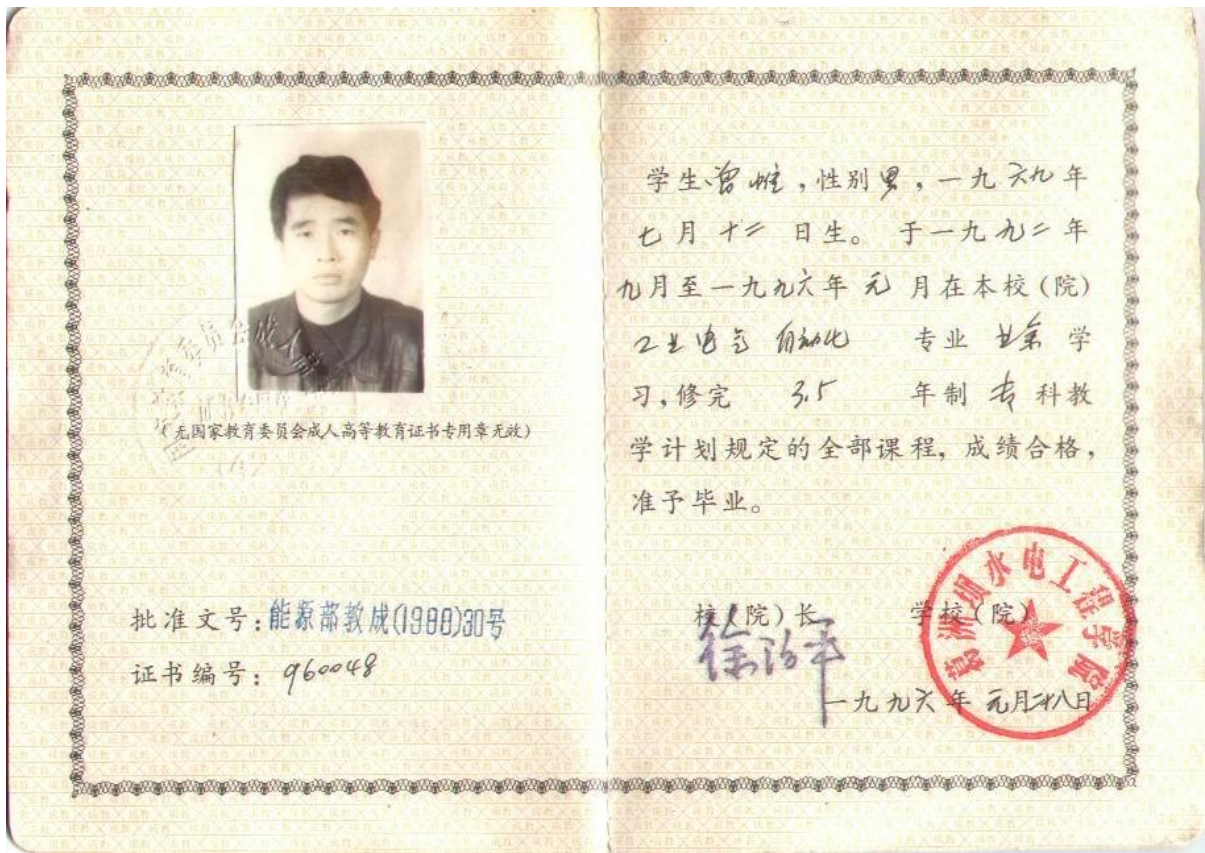 (无国家教育委员会成人高等教育证书专用章无效)
批准文号：能源部教成(1988)30号
证书编号：960048
学生曾，性别男，一九六九年
七月十二日生。于一九九二年
九月至一九九六年元月在本校(院)
工业电气自动化 专业 业余 学
习,修完 3.5 年制 专 科教
学计划规定的全部课程，成绩合格，
准予毕业。
校(院)长 学校(院)
徐治平
葛洲坝水电工程学院
一九九六年元月二十八日